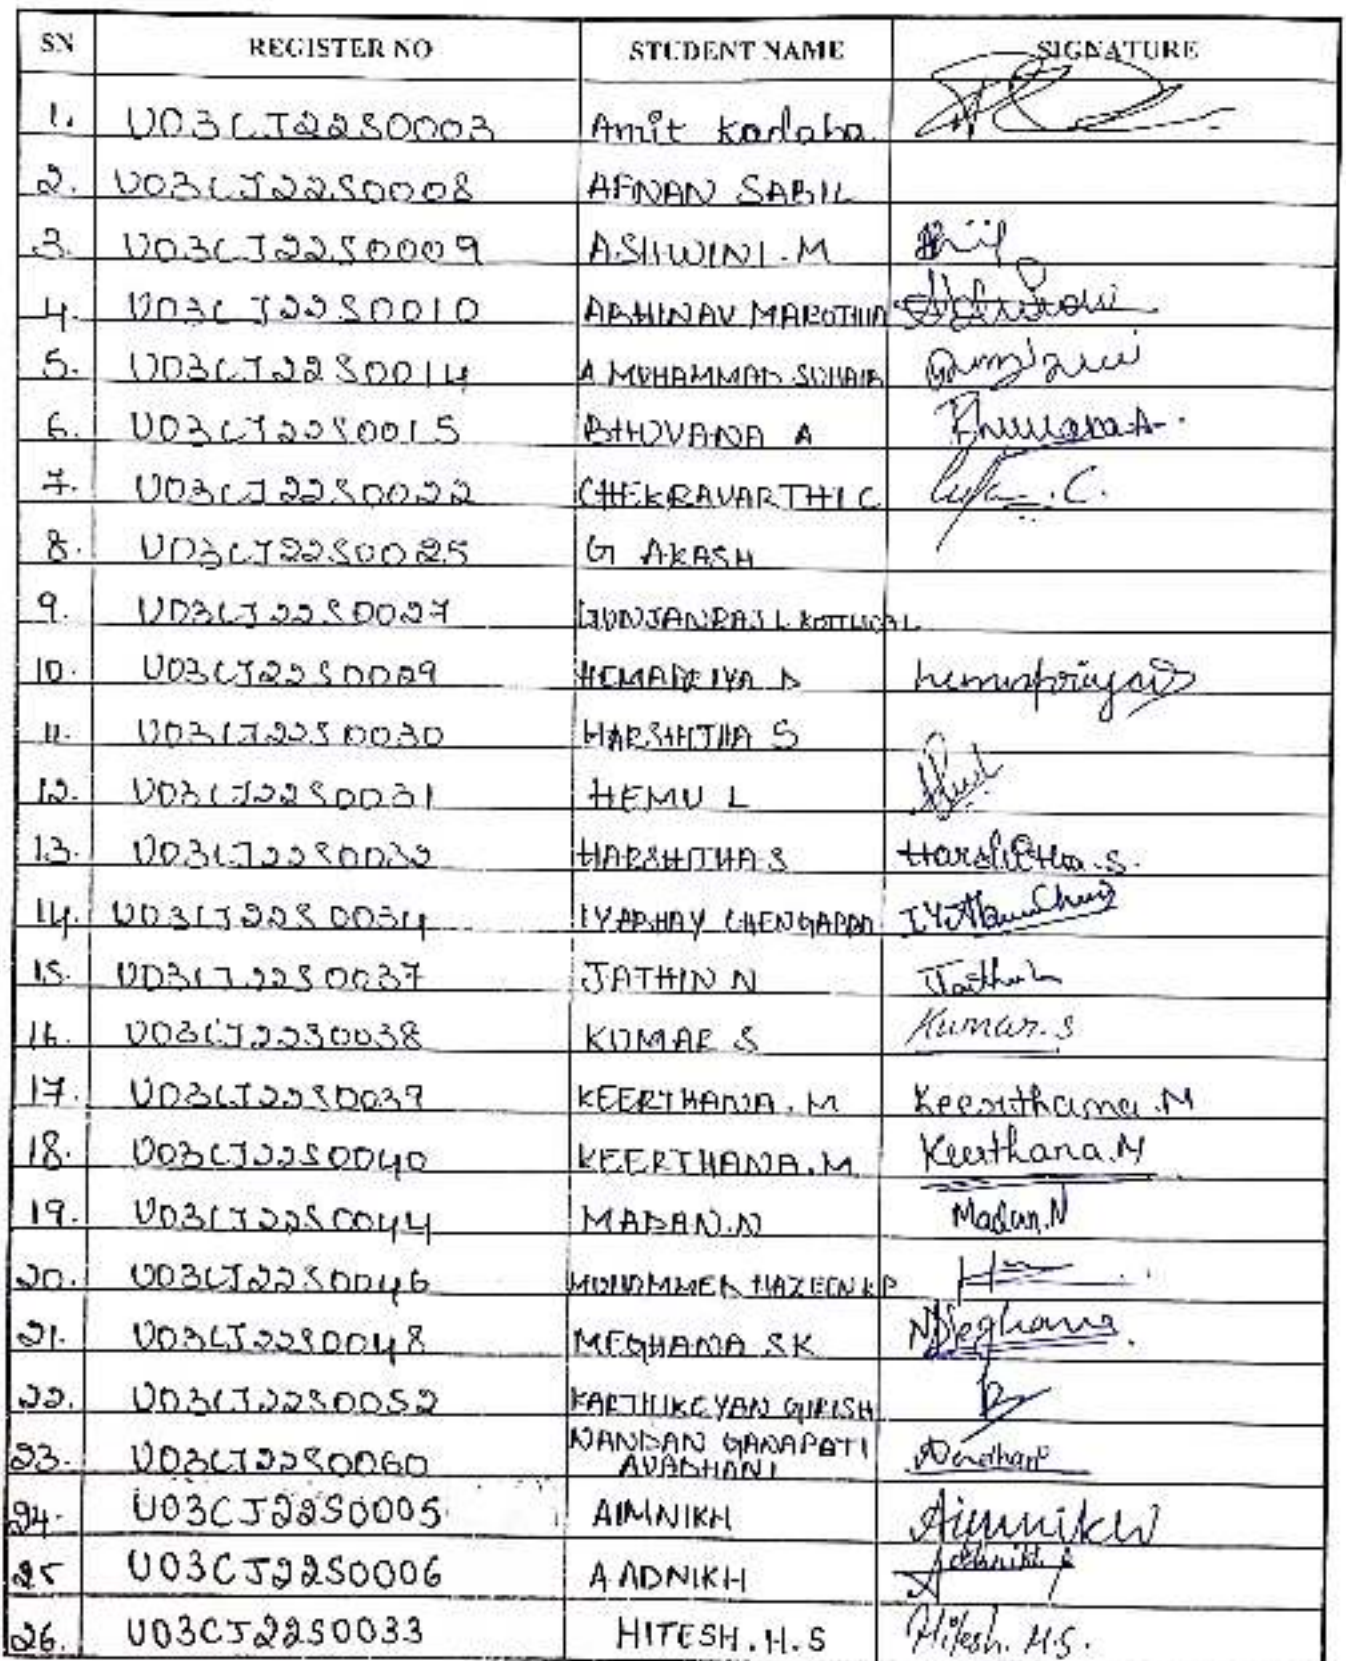 SN REGISTER NO STUDENT NAME SIGNATURE
1. U03CJ22S0003 Amit Kadaba
2. U03CJ22S0008 AFNAN SABIL
3. U03CJ22S0009 ASHWINI.M
4. U03CJ22S0010 ABHINAV MAROTHIA
5. U03CJ22S0014 A MUHAMMAD SUHAIB
6. U03CJ22S0015 BHUVANA A Bhuvana A.
7. U03CJ22S0022 CHEKRAVARTHI C
8. U03CJ22S0025 G AKASH
9. U03CJ22S0027 GUNJANRAJ L
10. U03CJ22S0029 HEMAPRIYA D hemapriya D
11. U03CJ22S0030 HARSHITHA S
12. U03CJ22S0031 HEMU L
13. U03CJ22S0032 HARSHITHA S Harshitha.S.
14. U03CJ22S0034 IYABHAY CHENGAPPA
15. U03CJ22S0037 JATHIN N Jathin
16. U03CJ22S0038 KUMAR S Kumar.S
17. U03CJ22S0039 KEERTHANA.M Keerthana.M
18. U03CJ22S0040 KEERTHANA.M Keerthana.M
19. U03CJ22S0044 MADAN.N Madan.N
20. U03CJ22S0046 MUHAMMED HAZEEN K P
21. U03CJ22S0048 MEGHANA SK Meghana
22. U03CJ22S0052 KARTHIKEYAN GIRISH
23. U03CJ22S0060 NANDAN GANAPATI
AVADHANI
24. U03CJ22S0005 AIMNIKH Aimnikh
25 U03CJ22S0006 AADNIKH
26. U03CJ22S0033 HITESH.H.S Hitesh. H.S.